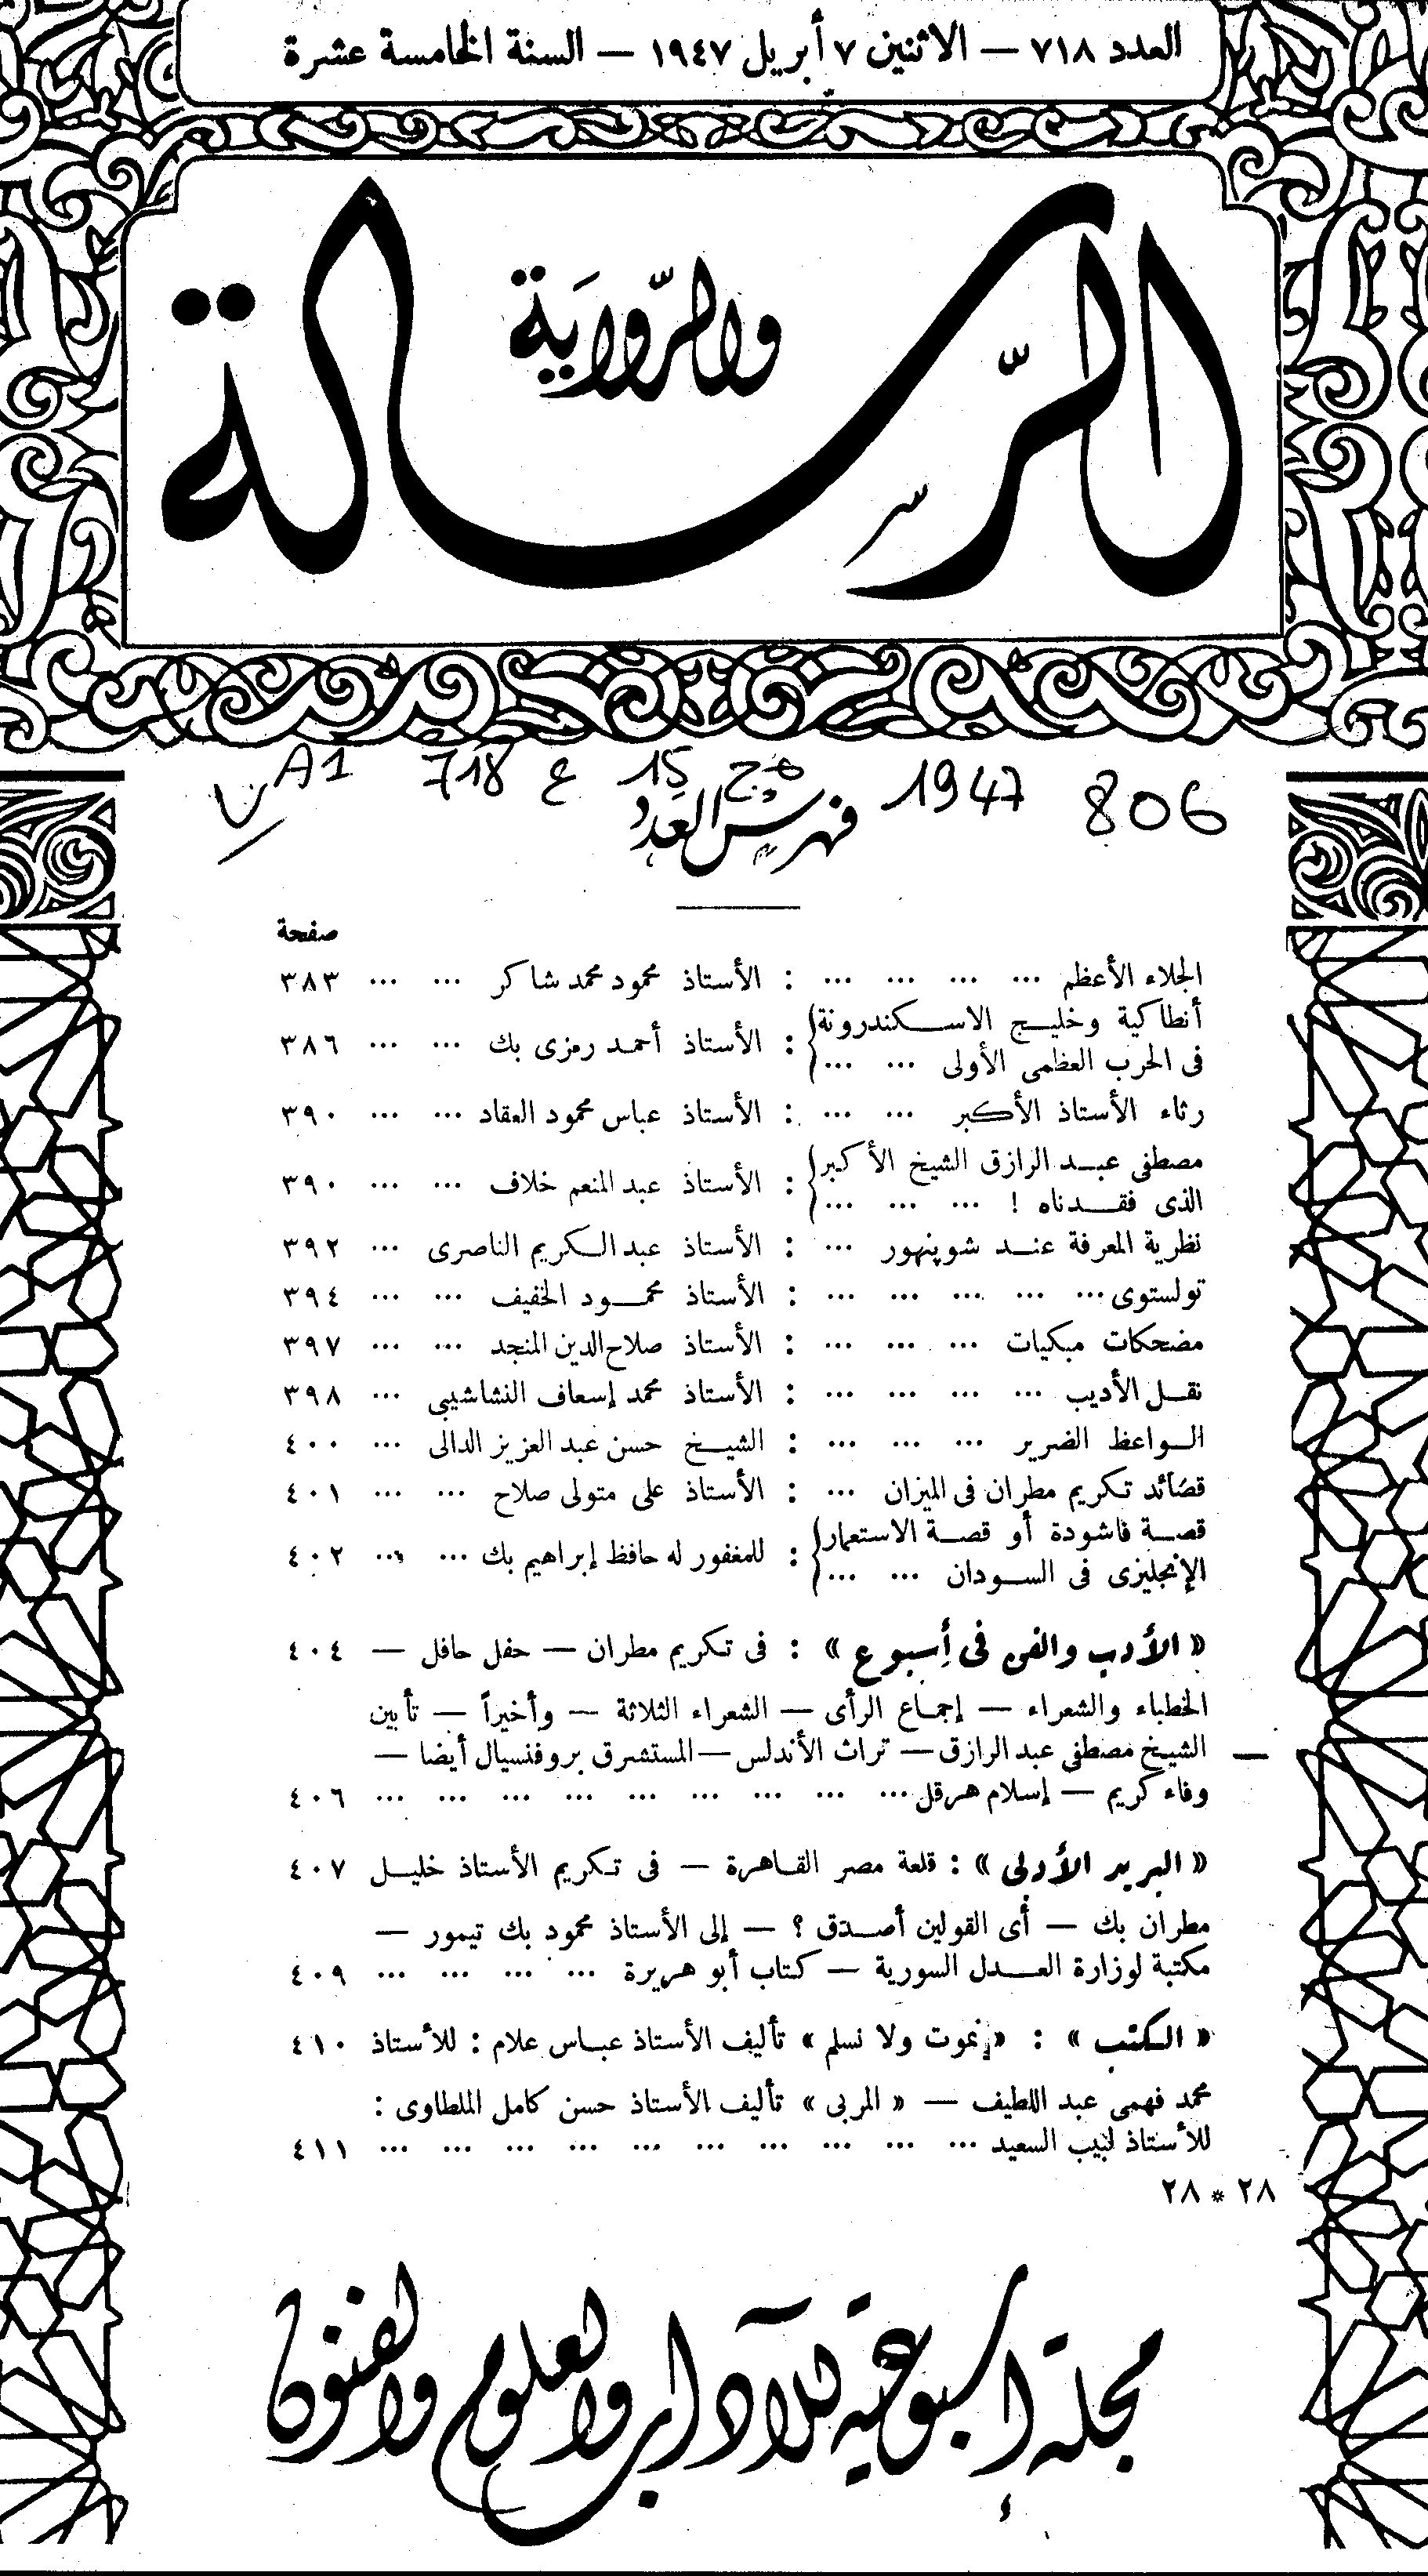 العدد ٧١٨ — الاثنين ٧ أبريل ١٩٤٧ — السنة الخامسة عشرة
الرسالة
والرواية
806 1947 ج 15 ع 718 A1
فهرس العدد
صفحة
الجلاء الأعظم ... ... ... ... : الأستاذ محمود محمد شاكر ... ... ٣٨٣
أنطاكية وخليج الاسكندرونة
فى الحرب العظمى الأولى ... ... : الأستاذ أحمد رمزى بك ... ... ٣٨٦
رثاء الأستاذ الأكبر ... ... : الأستاذ عباس محمود العقاد ... ... ٣٩٠
مصطفى عبد الرازق الشيخ الأكبر
الذى فقدناه ! ... ... ... : الأستاذ عبد المنعم خلاف ... ... ٣٩٠
نظرية المعرفة عند شوپنهور ... : الأستاذ عبد الكريم الناصرى ... ٣٩٢
تولستوى ... ... ... ... ... : الأستاذ محمود الخفيف ... ... ٣٩٤
مضحكات مبكيات ... ... ... : الأستاذ صلاح الدين المنجد ... ... ٣٩٧
نقل الأديب ... ... ... ... : الأستاذ محمد إسعاف النشاشيبى ... ٣٩٨
الواعظ الضرير ... ... ... : الشيخ حسن عبد العزيز الدالى ... ٤٠٠
قصائد تكريم مطران فى الميزان ... : الأستاذ على متولى صلاح ... ... ٤٠١
قصة فاشودة أو قصة الاستعمار
الإنجليزى فى السودان ... ... : للمغفور له حافظ إبراهيم بك ... ... ٤٠٢
« الأدب والفن فى أسبوع » : فى تكريم مطران — حفل حافل — ٤٠٤
الخطباء والشعراء — إجماع الرأى — الشعراء الثلاثة — وأخيراً — تأبين
الشيخ مصطفى عبد الرازق — تراث الأندلس — المستشرق بروفنسيال أيضا —
وفاء كريم — إسلام هرقل ... ... ... ... ... ... ... ... ... ٤٠٦
« البريد الأدبى » : قلعة مصر القاهرة — فى تكريم الأستاذ خليل ٤٠٧
مطران بك — أى القولين أصدق ؟ — إلى الأستاذ محمود بك تيمور —
مكتبة لوزارة العدل السورية — كتاب أبو هريرة ... ... ... ... ٤٠٩
« الكتب » : « نموت ولا نسلم » تأليف الأستاذ عباس علام : للأستاذ ٤١٠
محمد فهمى عبد اللطيف — « المربى » تأليف الأستاذ حسن كامل الملطاوى :
للأستاذ لبيب السعيد ... ... ... ... ... ... ... ... ... ... ٤١١
٢٨ * ٢٨
مجلة أسبوعية للآداب والعلوم والفنون